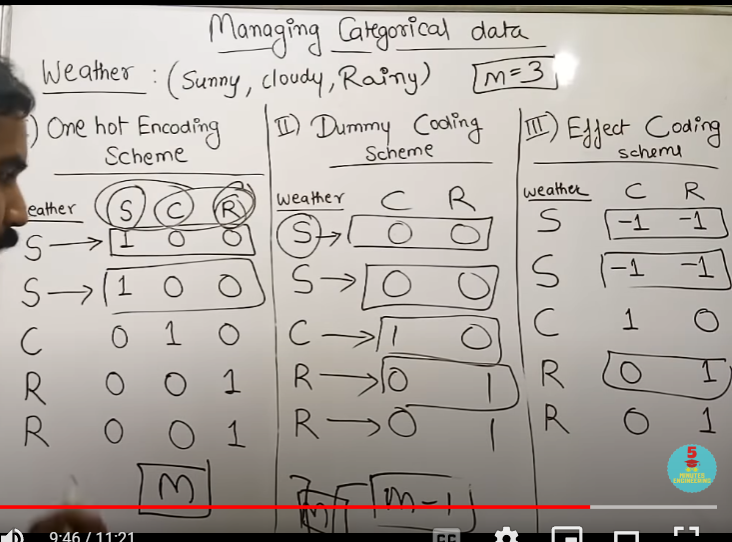 Managing Categorical data
Weather : (Sunny, cloudy, Rainy) m=3
) One hot Encoding
Scheme
eather S C R
S → 1 0 0
S → 1 0 0
C 0 1 0
R 0 0 1
R 0 0 1
m
II) Dummy Coding
Scheme
weather C R
S → 0 0
S → 0 0
C → 1 0
R → 0 1
R → 0 1
m-1
III) Effect Coding
scheme
weather C R
S -1 -1
S -1 -1
C 1 0
R 0 1
R 0 1
5
MINUTES
ENGINEERING
9:46 / 11:21
CC